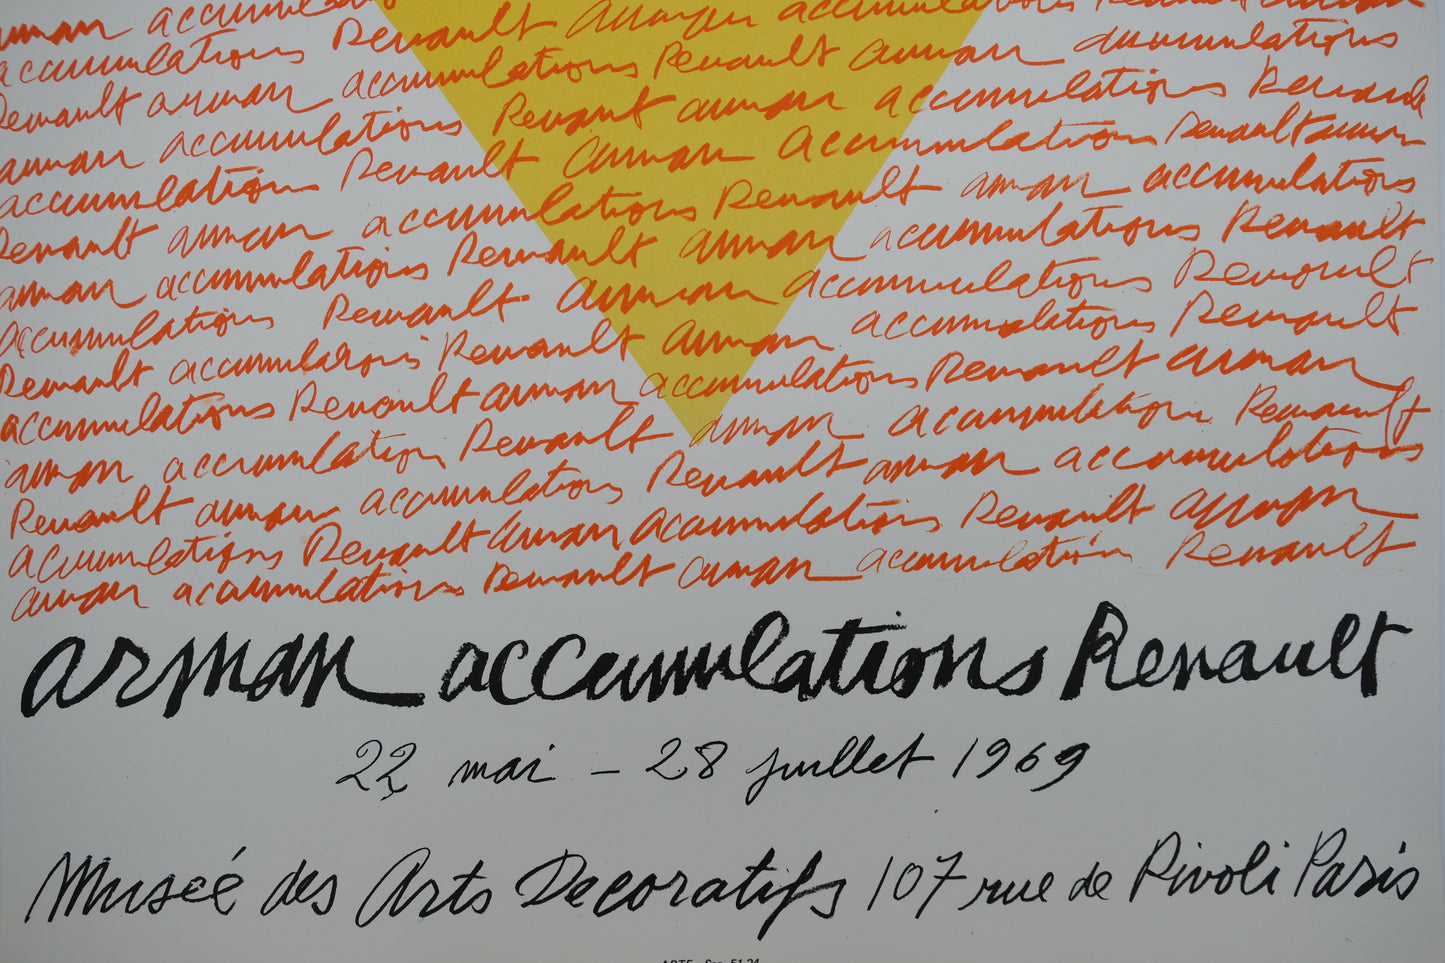 arman accumulations Renault arman accumulations
accumulations Renault arman accumulations Renault arman accumulations
Renault arman accumulations Renault arman accumulations Renault
arman accumulations Renault arman accumulations Renault arman
accumulations Renault arman accumulations Renault arman accumulations
Renault arman accumulations Renault arman accumulations Renault
arman accumulations Renault arman accumulations Renault
accumulations Renault arman accumulations Renault
Renault accumulations Renault arman accumulations Renault arman
accumulations Renault arman accumulations Renault
arman accumulation Renault arman accumulations
Renault arman accumulations Renault arman
accumulations Renault arman accumulations Renault
arman accumulations Renault arman accumulation
arman accumulations Renault
22 mai - 28 juillet 1969
Museé des Arts Decoratifs 107 rue de Rivoli Paris